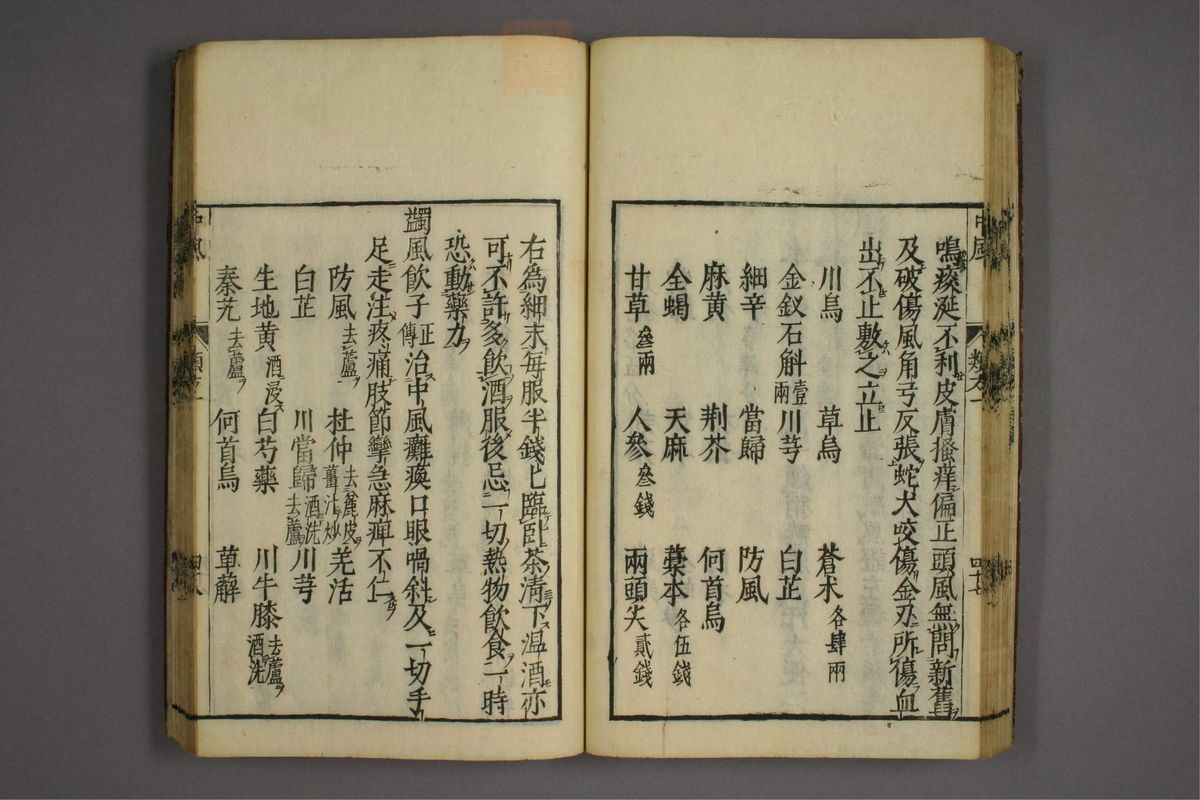 鳴痰涎不利皮膚搔痒偏正頭風無問新舊
及破傷風角弓反張蛇犬咬傷金刃所傷血
出不止敷之立止
川烏 草烏 蒼朮各肆兩
金釵石斛壹兩 川芎 白芷
細辛 當歸 防風
麻黄 荆芥 何首烏
全蝎 天麻 藁本各伍錢
甘草叄兩 人參叄錢 兩頭尖貳錢
右為細末每服半錢匕臨卧茶清下温酒亦
可不許多飲酒服後忌一切熱物飲食一時
恐動藥力
蠲風飲子正傳治中風癱瘓口眼喎斜及一切手
足走注疼痛肢節攣急麻痺不仁
防風去蘆 杜仲去麄皮薑汁炒 羌活
白芷 川當歸去蘆酒洗 川芎
生地黄酒浸 白芍藥 川牛膝去蘆酒洗
秦艽去蘆 何首烏 萆薢
中風